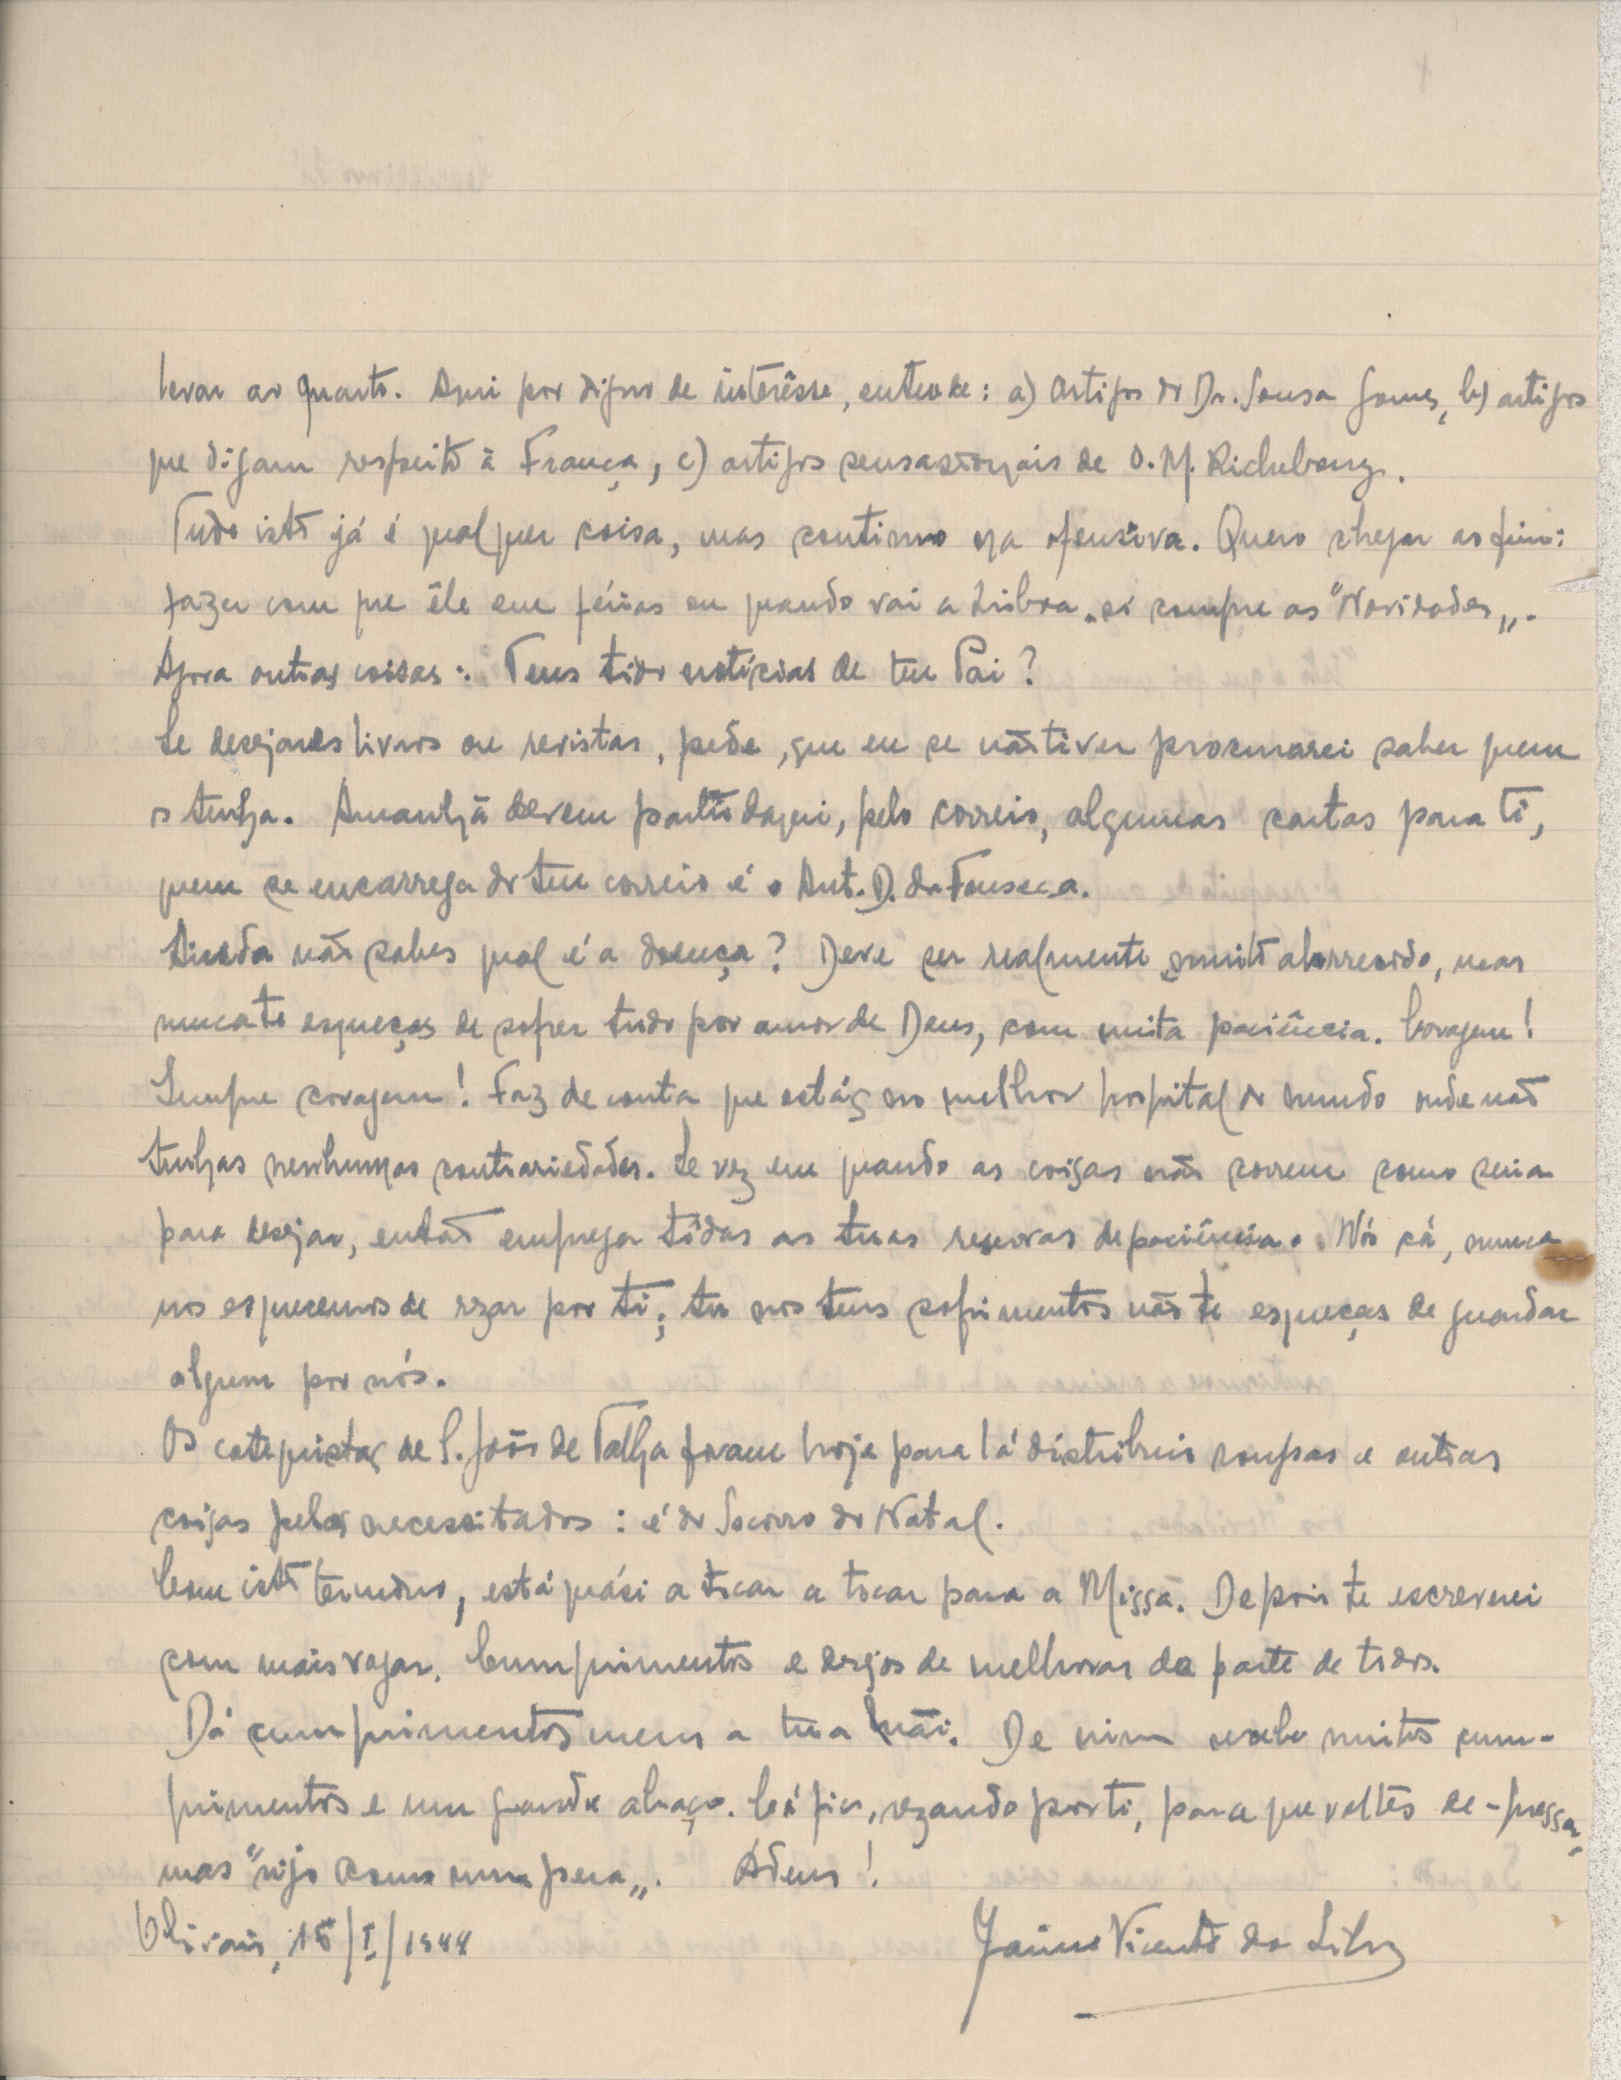 levar ao quarto. Aqui por digno de interêsse, entende: a) artigos do Dr. Sousa Gomes, b) artigos
que digam respeito à França, c) artigos sensacionais de O. M.
Tudo isto já é qualquer coisa, mas continuo na ofensiva. Quero chegar ao fim:
fazer com que êle em férias ou quando vai a Lisboa sempre as "Novidades„.
Agora outras coisas: Tens tido notícias de teu Pai?
Se desejares livros ou revistas, pede, que eu se não tiver procurarei saber quem
o tenha. Amanhã devem partir daqui, pelo correio, algumas cartas para ti,
quem se encarrega do teu correio é o Ant. D. da Fonseca.
Ainda não sabes qual é a doença? Deve ser realmente muito aborrecido, mas
nunca te esqueças de sofrer tudo por amor de Deus, com muita paciência. Coragem!
Sempre coragem! Faz de conta que estás no melhor hospital do mundo onde não
tenhas nenhumas contrariedades. Se vez em quando as coisas não correm como seria
para desejar, então emprega tôdas as tuas reservas de paciência. Nós cá, nunca
nos esquecemos de rezar por ti; tu nos teus sofrimentos não te esqueças de guardar
algum por nós.
Os catequistas de S. João de Talha foram hoje para lá distribuir roupas e outras
coisas pelos necessitados: é do Socorro do Natal.
Com isto termino, está quási a tocar a tocar para a Missa. Depois te escreverei
com mais vagar. Cumprimentos e desejos de melhoras da parte de todos.
Dá cumprimentos meus a tua Mãi. De mim recebe muitos cum-
primentos e um grande abraço. Cá fico, rezando por ti, para que voltes de-pressa,
mas "rijo como um pera„. Adeus!
Olivais, 15/I/1944 Jaime Vicente da Silva